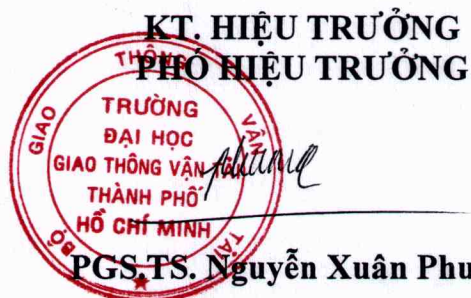 KT. HIỆU TRƯỞNG
PHÓ HIỆU TRƯỞNG
BỘ GIAO THÔNG VẬN TẢI
TRƯỜNG
ĐẠI HỌC
GIAO THÔNG VẬN TẢI
THÀNH PHỐ
HỒ CHÍ MINH
PGS.TS. Nguyễn Xuân Phu